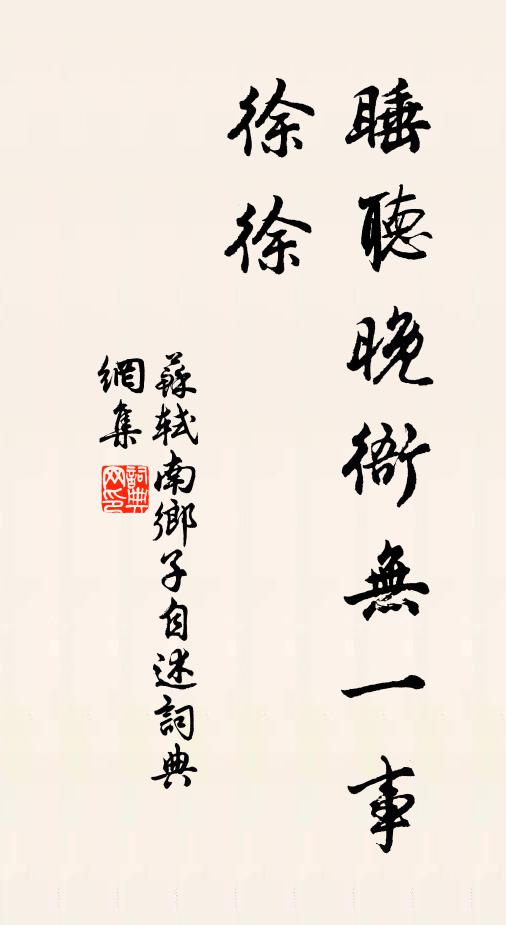 睡聽晚衙無一事
徐徐
蘇軾南鄉子自述詞典
網集
詞典
網印